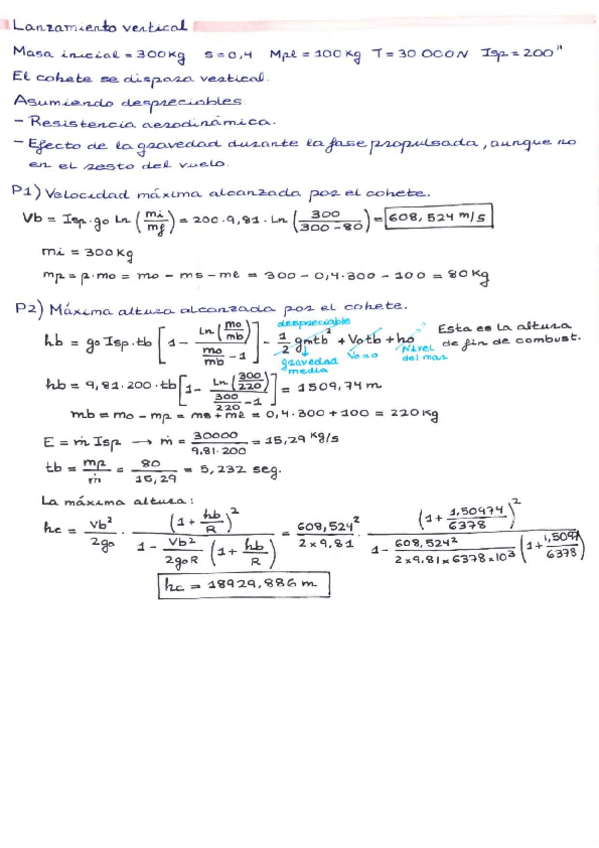 Lanzamiento vertical
Masa inicial = 300kg s=0,4 Mpl = 100 Kg T= 30 000N Isp = 200"
El cohete se dispara vertical.
Asumiendo despreciables
- Resistencia aerodinámica.
- Efecto de la gravedad durante la fase propulsada, aunque no
en el resto del vuelo.
P1) Velocidad máxima alcanzada por el cohete.
Vb = Isp·go Ln (mi/mf) = 200·9,81·Ln (300/(300-80)) = 608,524 m/s
mi = 300 Kg
mp = p·mo = mo - ms - ml = 300 - 0,4·300 - 100 = 80 Kg
P2) Máxima altura alcanzada por el cohete.
despreciable
hb = go Isp·tb [1 - Ln(mo/mb)/(mo/mb - 1)] - 1/2 gm tb² + Vo tb + ho
Esta es la altura
de fin de combust.
gravedad
media
Vo=0
Nivel
del mar
hb = 9,81·200·tb [1 - Ln(300/220)/(300/220 - 1)] = 1509,74 m
mb = mo - mp = ms + ml = 0,4·300 + 100 = 220 Kg
E = ṁ Isp → ṁ = 30000/(9.81·200) = 15,29 kg/s
tb = mp/ṁ = 80/15,29 = 5,232 seg.
La máxima altura:
hc = Vb²/2go · (1 + hb/R)²/(1 - Vb²/2goR (1 + hb/R)) = 608,524²/(2×9,81) · (1 + 1,50974/6378)²/(1 - 608,524²/(2×9,81×6378×10³) (1 + 1,5097/6378))
hc = 18929,886 m